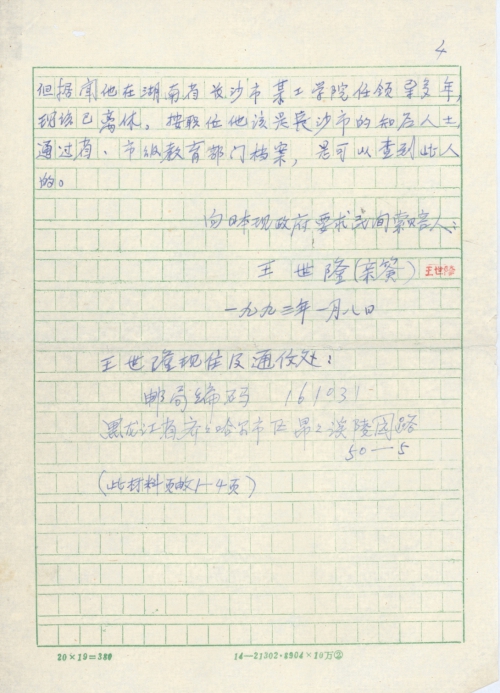 4
但据闻他在湖南省长沙市某工学院任领导多年,
现该已离休。按职位他该是长沙市的知名人士
通过省、市级教育部门档案,是可以查到此人
的。
向日本现政府要求民间索赔人:
王世隆(亲簽) 王世隆
一九九三年一月八日
王世隆现住及通信处:
邮局编码 161031
黑龙江省齐齐哈尔市昂昂溪陵园路
50—5
(此材料页数1—4页)
20×19=380 14—21302·8904×10万②